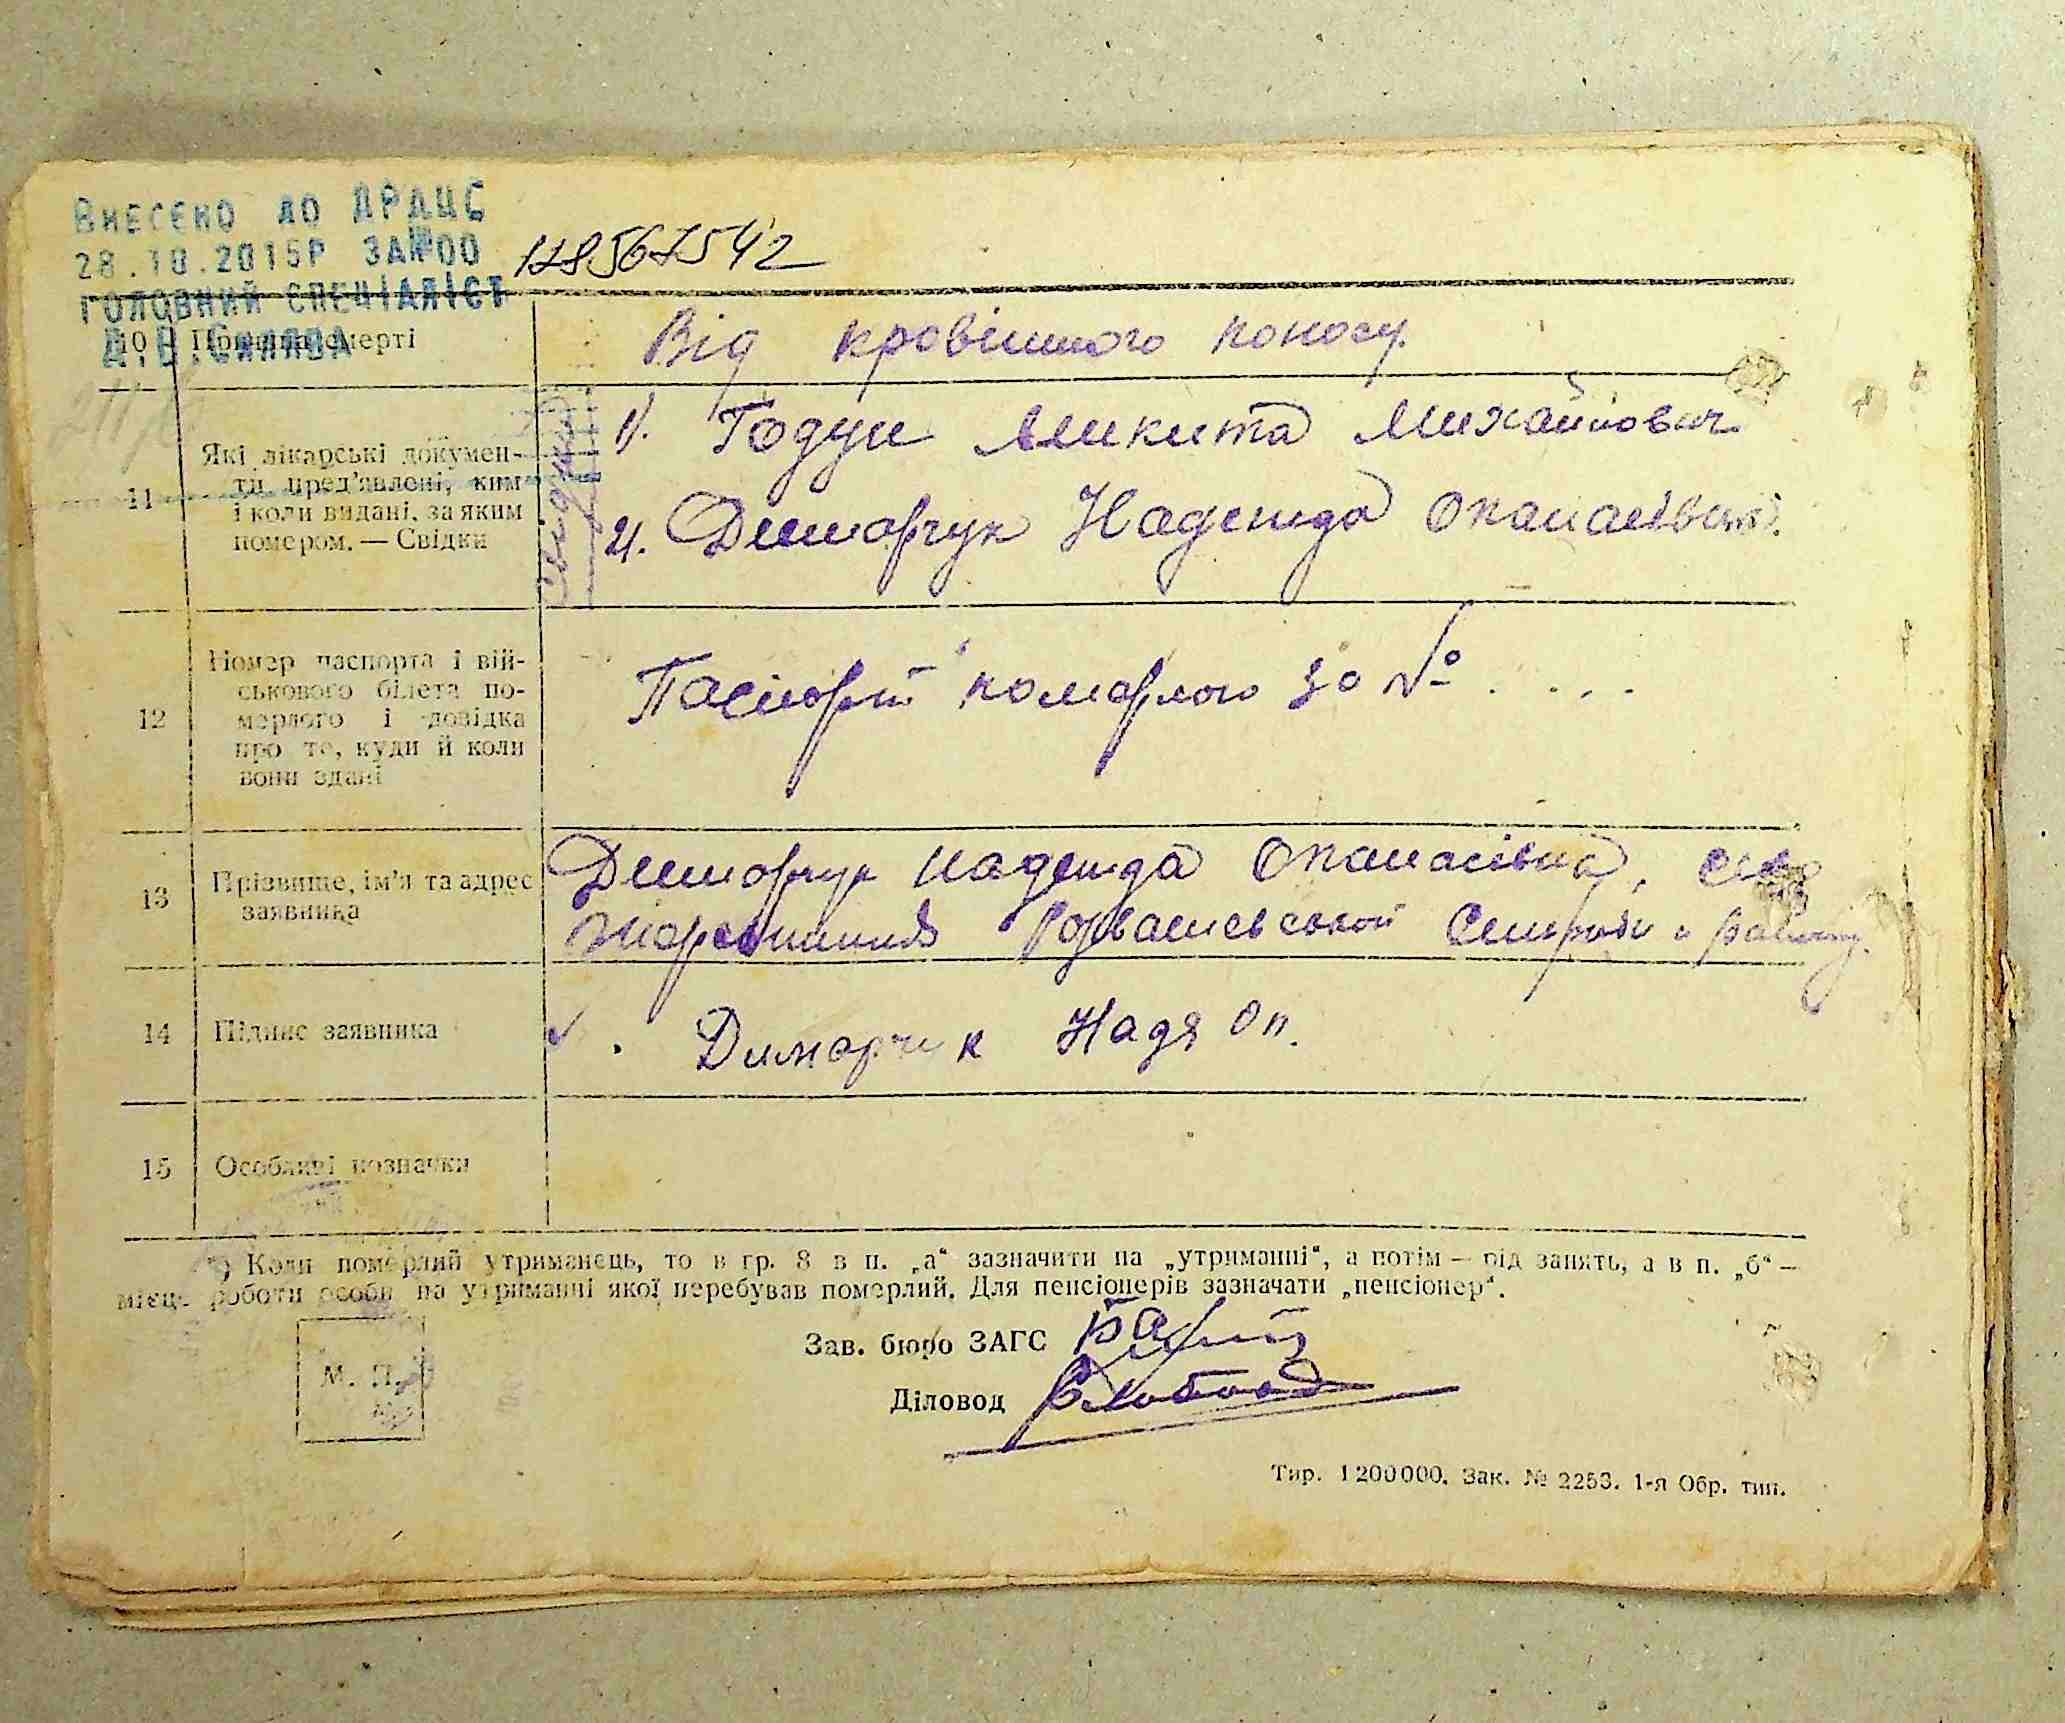 ВНЕСЕНО ДО ДРАЦС
28.10.2015Р ЗА №00 178567542
ГОЛОВНИЙ СПЕЦІАЛІСТ
10 Причина смерті
Від кровішного поносу.
11 Які лікарські докумен-
ти пред'явлені, ким
і коли видані, за яким
номером. — Свідки
Свідки
1). Годун Микита Михайлович
2). Диморчук Надежда Опанасівна.
12 Номер паспорта і вій-
ськового білета по-
мерлого і довідка
про те, куди й коли
вони здані
Паспорт поморлого за № . . . .
13 Прізвище, ім'я та адрес
заявника
Диморчук Надежда Опанасівна, село
Розважевської
14 Підпис заявника
Диморчук Надя Оп.
15 Особливі позначки
*) Коли померлий утриманець, то в гр. 8 в п. „а“ зазначити на „утриманні“, а потім — від занять, а в п. „б“ —
місце роботи особи на утриманні якої перебував померлий. Для пенсіонерів зазначати „пенсіонер“.
Зав. бюро ЗАГС
М. П.
Діловод
Тир. 1200000. Зак. № 2253. 1-я Обр. тип.